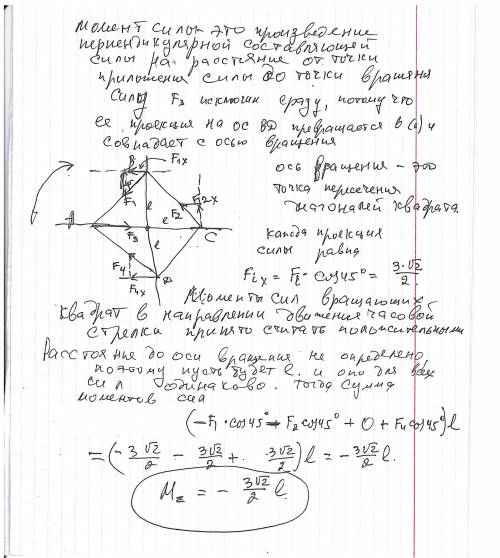 Момент силы это произведение
перпендикулярной составляющей
силы на расстояние от точки
приложения силы до точки вращения
Силу F₃ исключим сразу, потому что
ее проекция на ось превращается в (0) и
совпадает с осью вращения
B F₁ₓ
F₁
F₂ F₂ₓ
A F₃ l l C
l
F₄ D
F₄ₓ
ось вращения – это
точка пересечения
диагоналей квадрата.
каждая проекция
силы равна
Fᵢₓ = Fᵢ · cos45° = 3·√2/2
Моменты сил вращающих
квадрат в направлении движения часовой
стрелки принято считать положительными
Расстояние до оси вращения не определено,
поэтому пусть будет l. и оно для всех
сил одинаково. Тогда сумма
моментов сил
(-F₁·cos45° - F₂cos45° + 0 + F₄cos45°)l
= (-3√2/2 - 3√2/2 + 3√2/2)l = -3√2/2 l.
M_Σ = - 3√2/2 l.